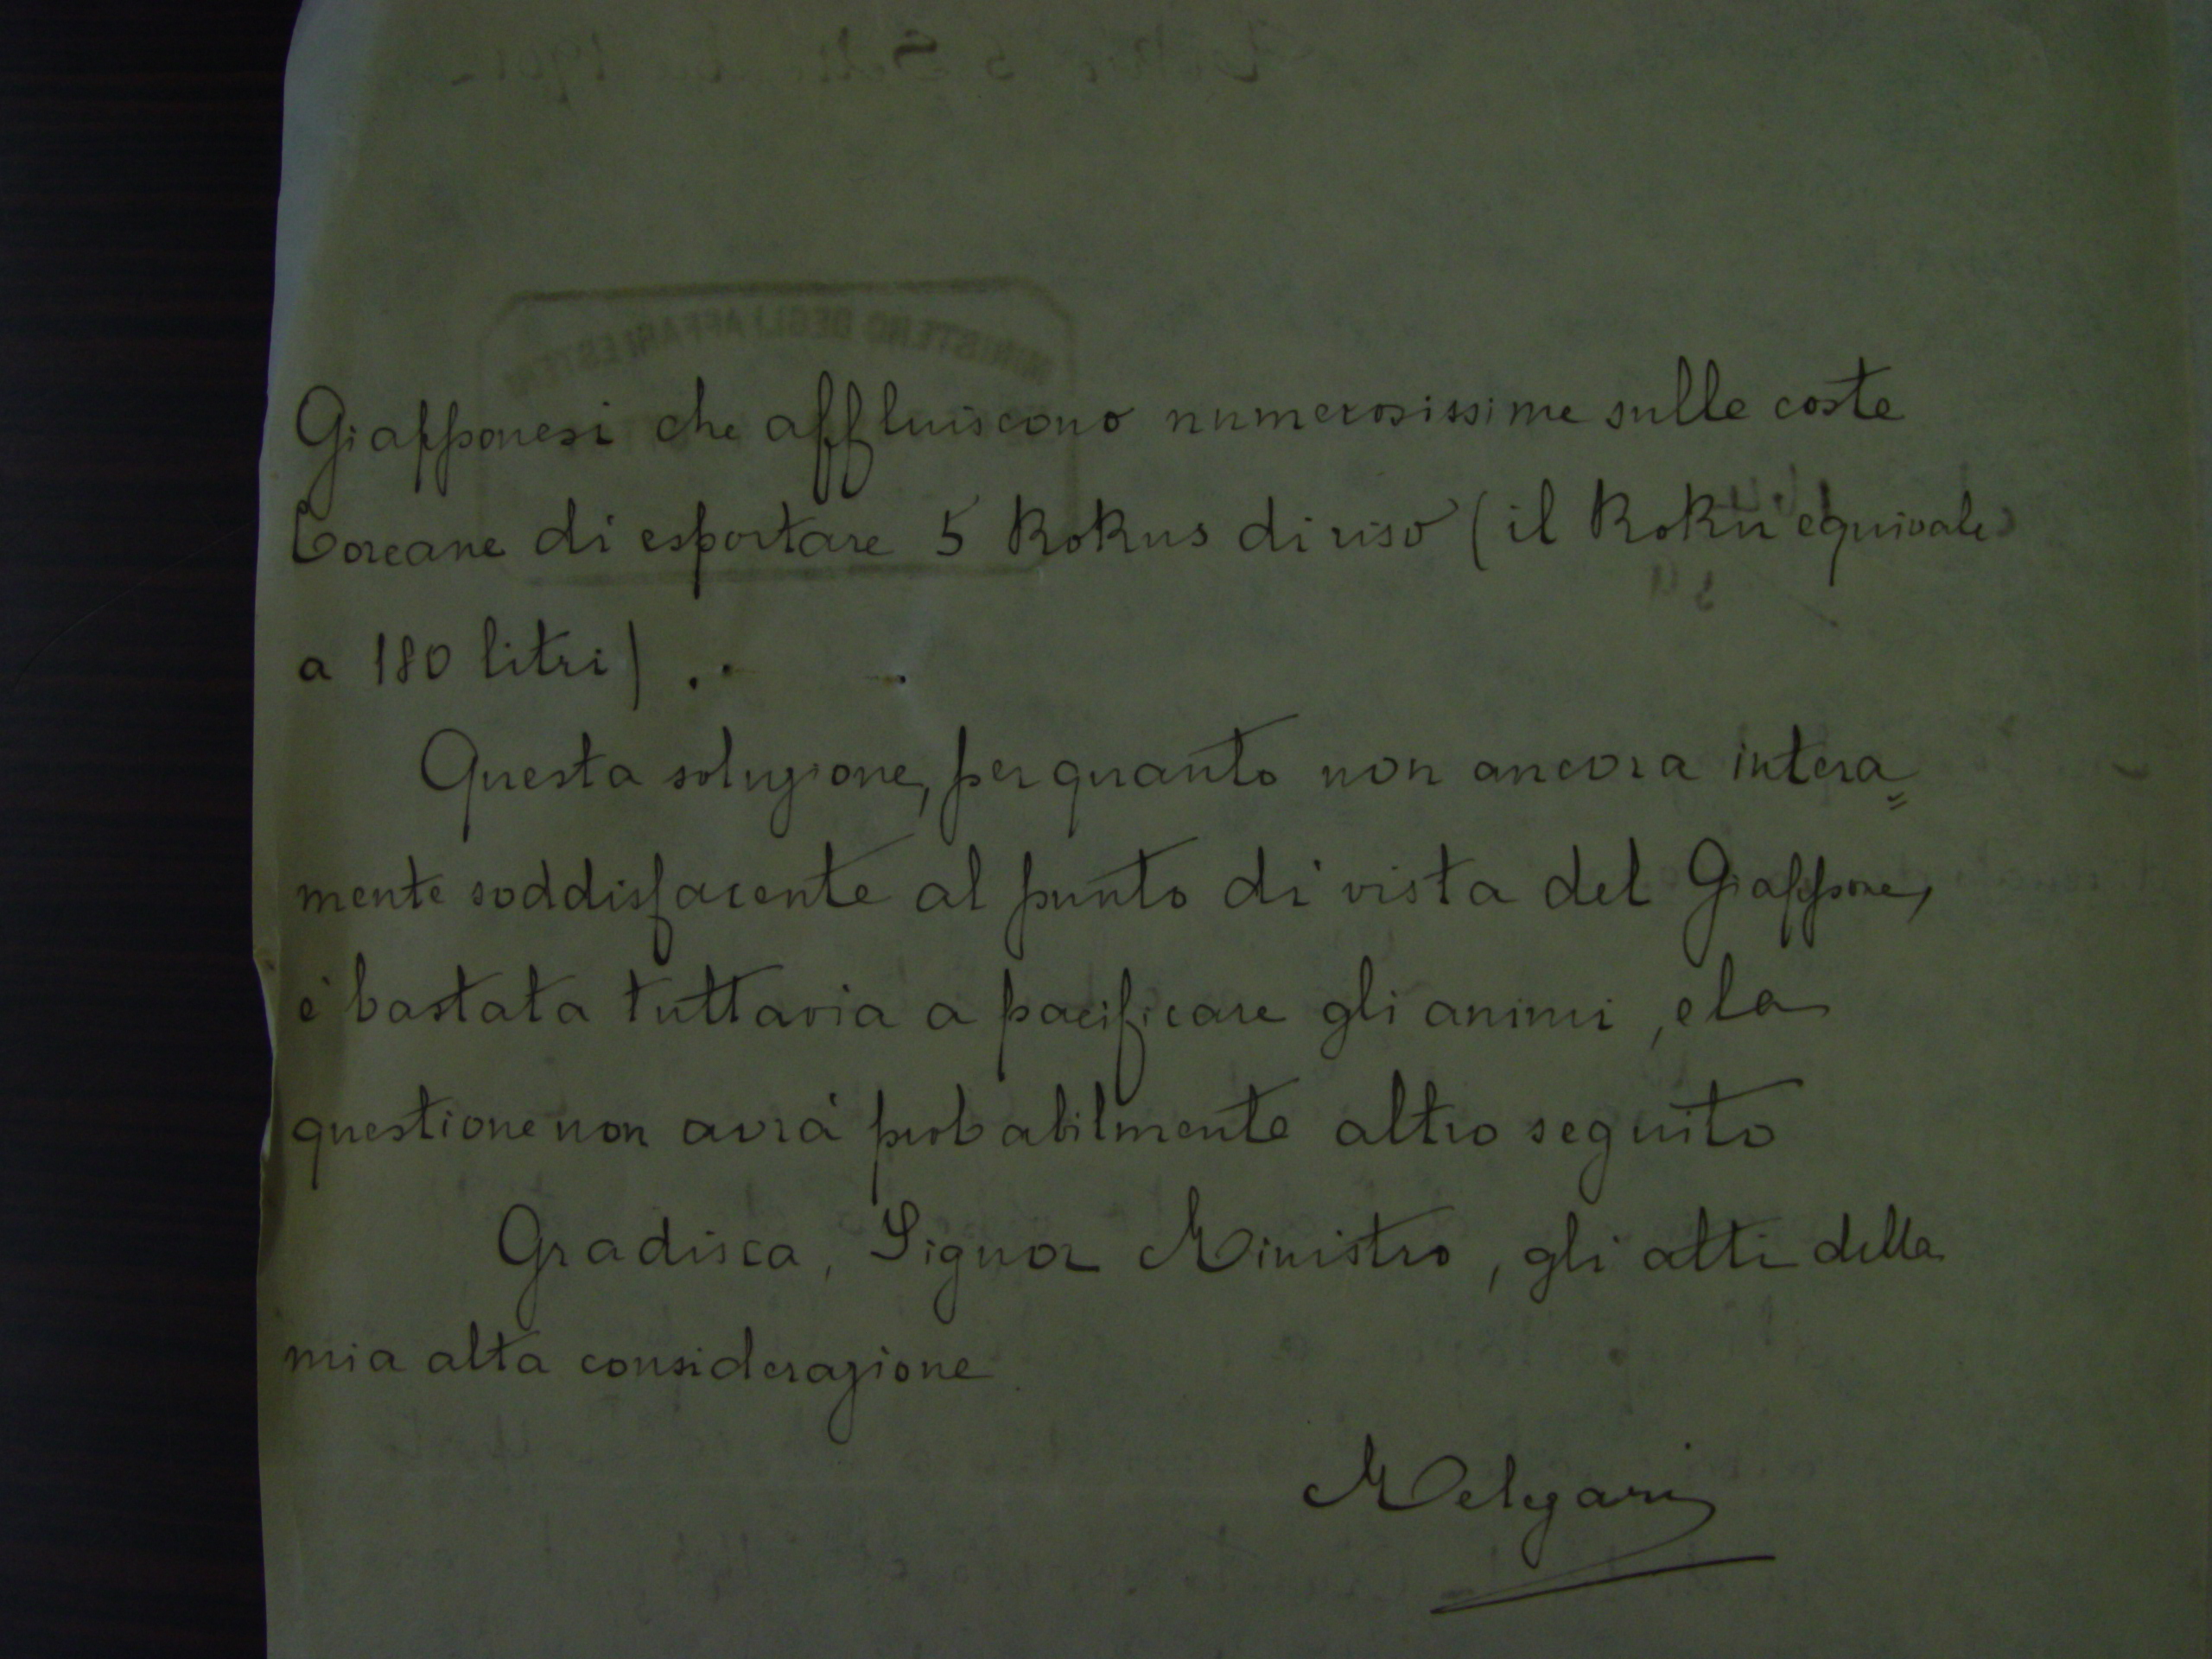 Giapponesi che affluiscono numerosissime sulle coste
Coreane di esportare 5 Kokus di riso (il Koku equivale
a 180 litri).
Questa soluzione, per quanto non ancora intera=
mente soddisfacente al punto di vista del Giappone,
è bastata tuttavia a pacificare gli animi, e la
questione non avrà probabilmente altro seguito
Gradisca, Signor Ministro, gli atti della
mia alta considerazione
Melegari
MINISTERO DEGLI AFFARI ESTERI